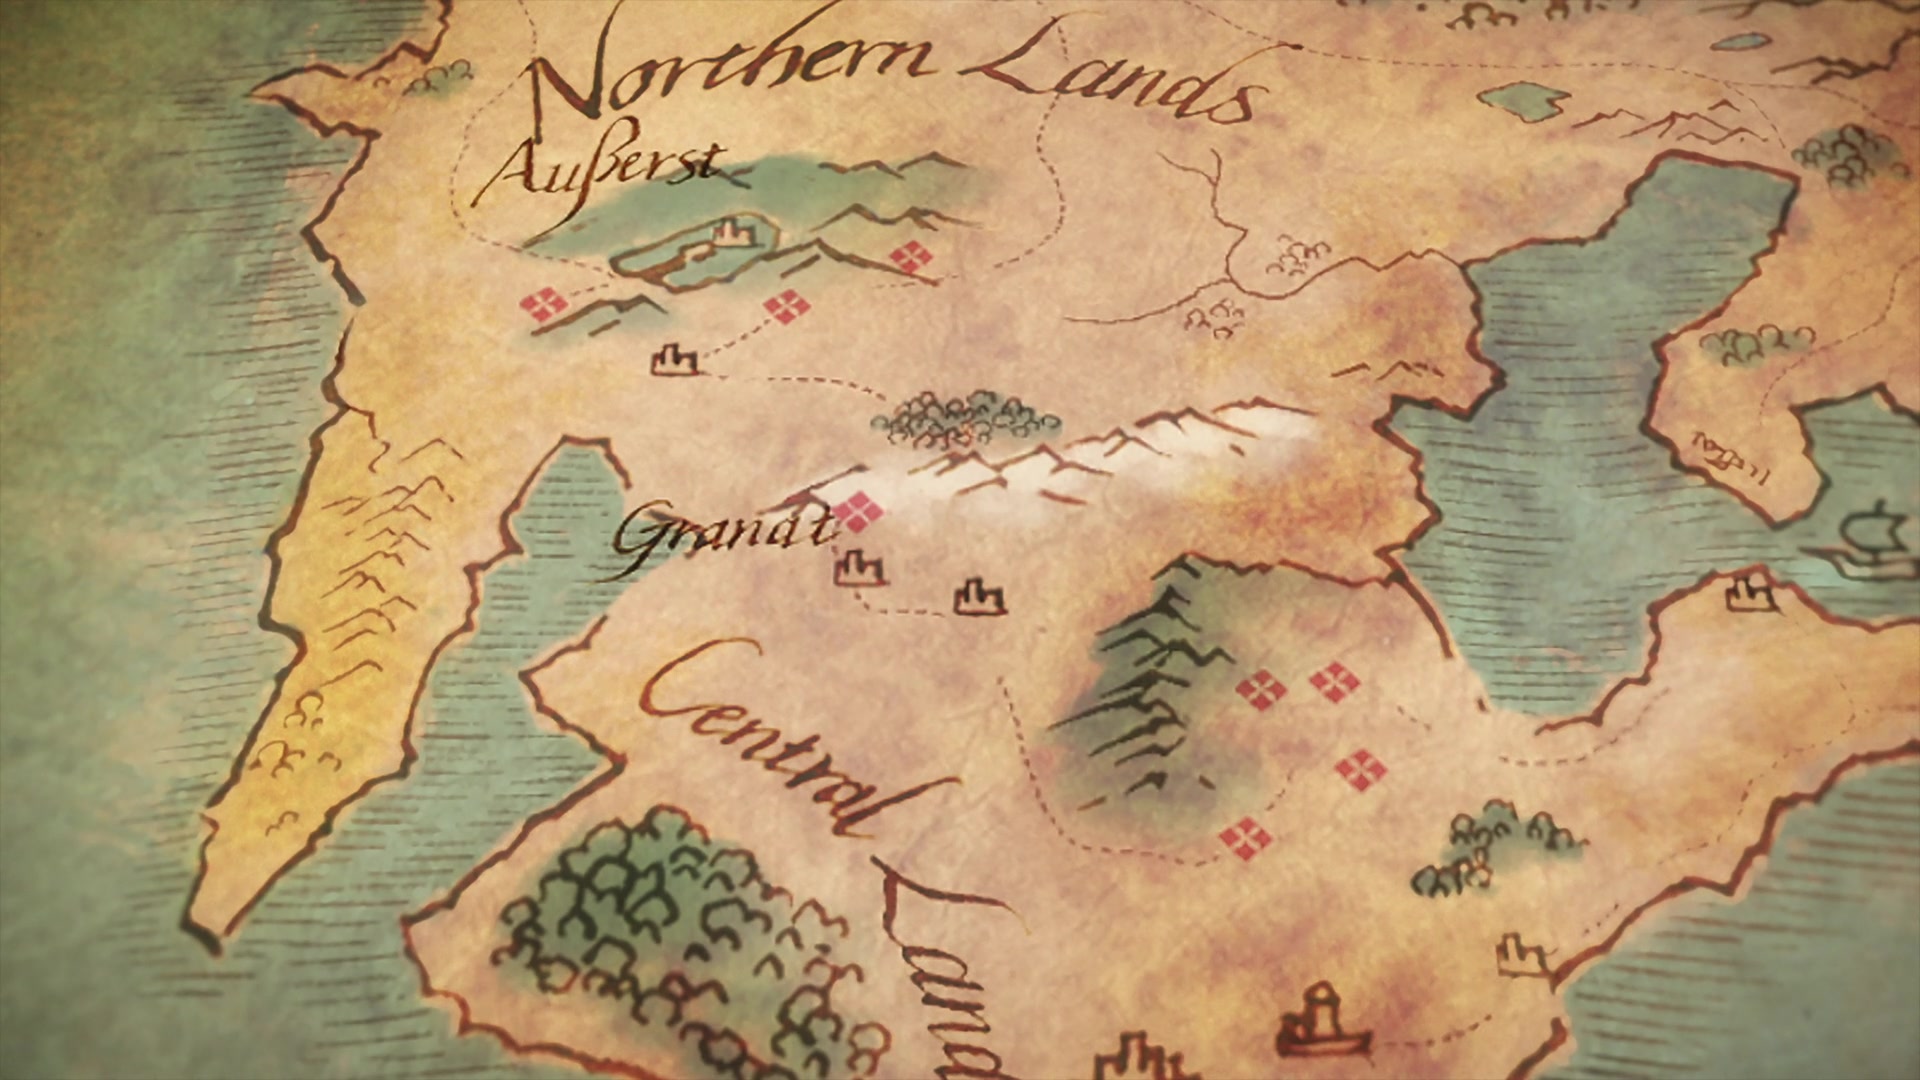 Northern Lands
Außerst
Granat
Central
Land